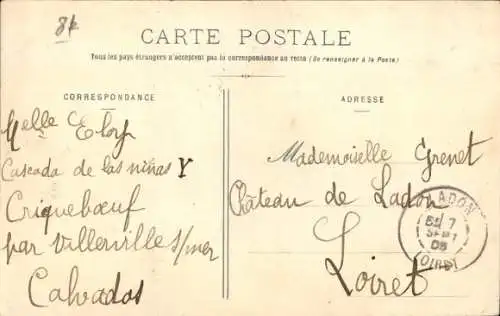 84
CARTE POSTALE
Tous les pays étrangers n'acceptent pas la correspondance au recto (Se renseigner à la Poste)
CORRESPONDANCE
ADRESSE
Melle Eloy
Cascada de las niñas Y
Criquebœuf
par Villerville s/mer
Calvados
Mademoiselle Grenet
Château de Ladon
Loiret
LADON
7
SEPT
LOIRET